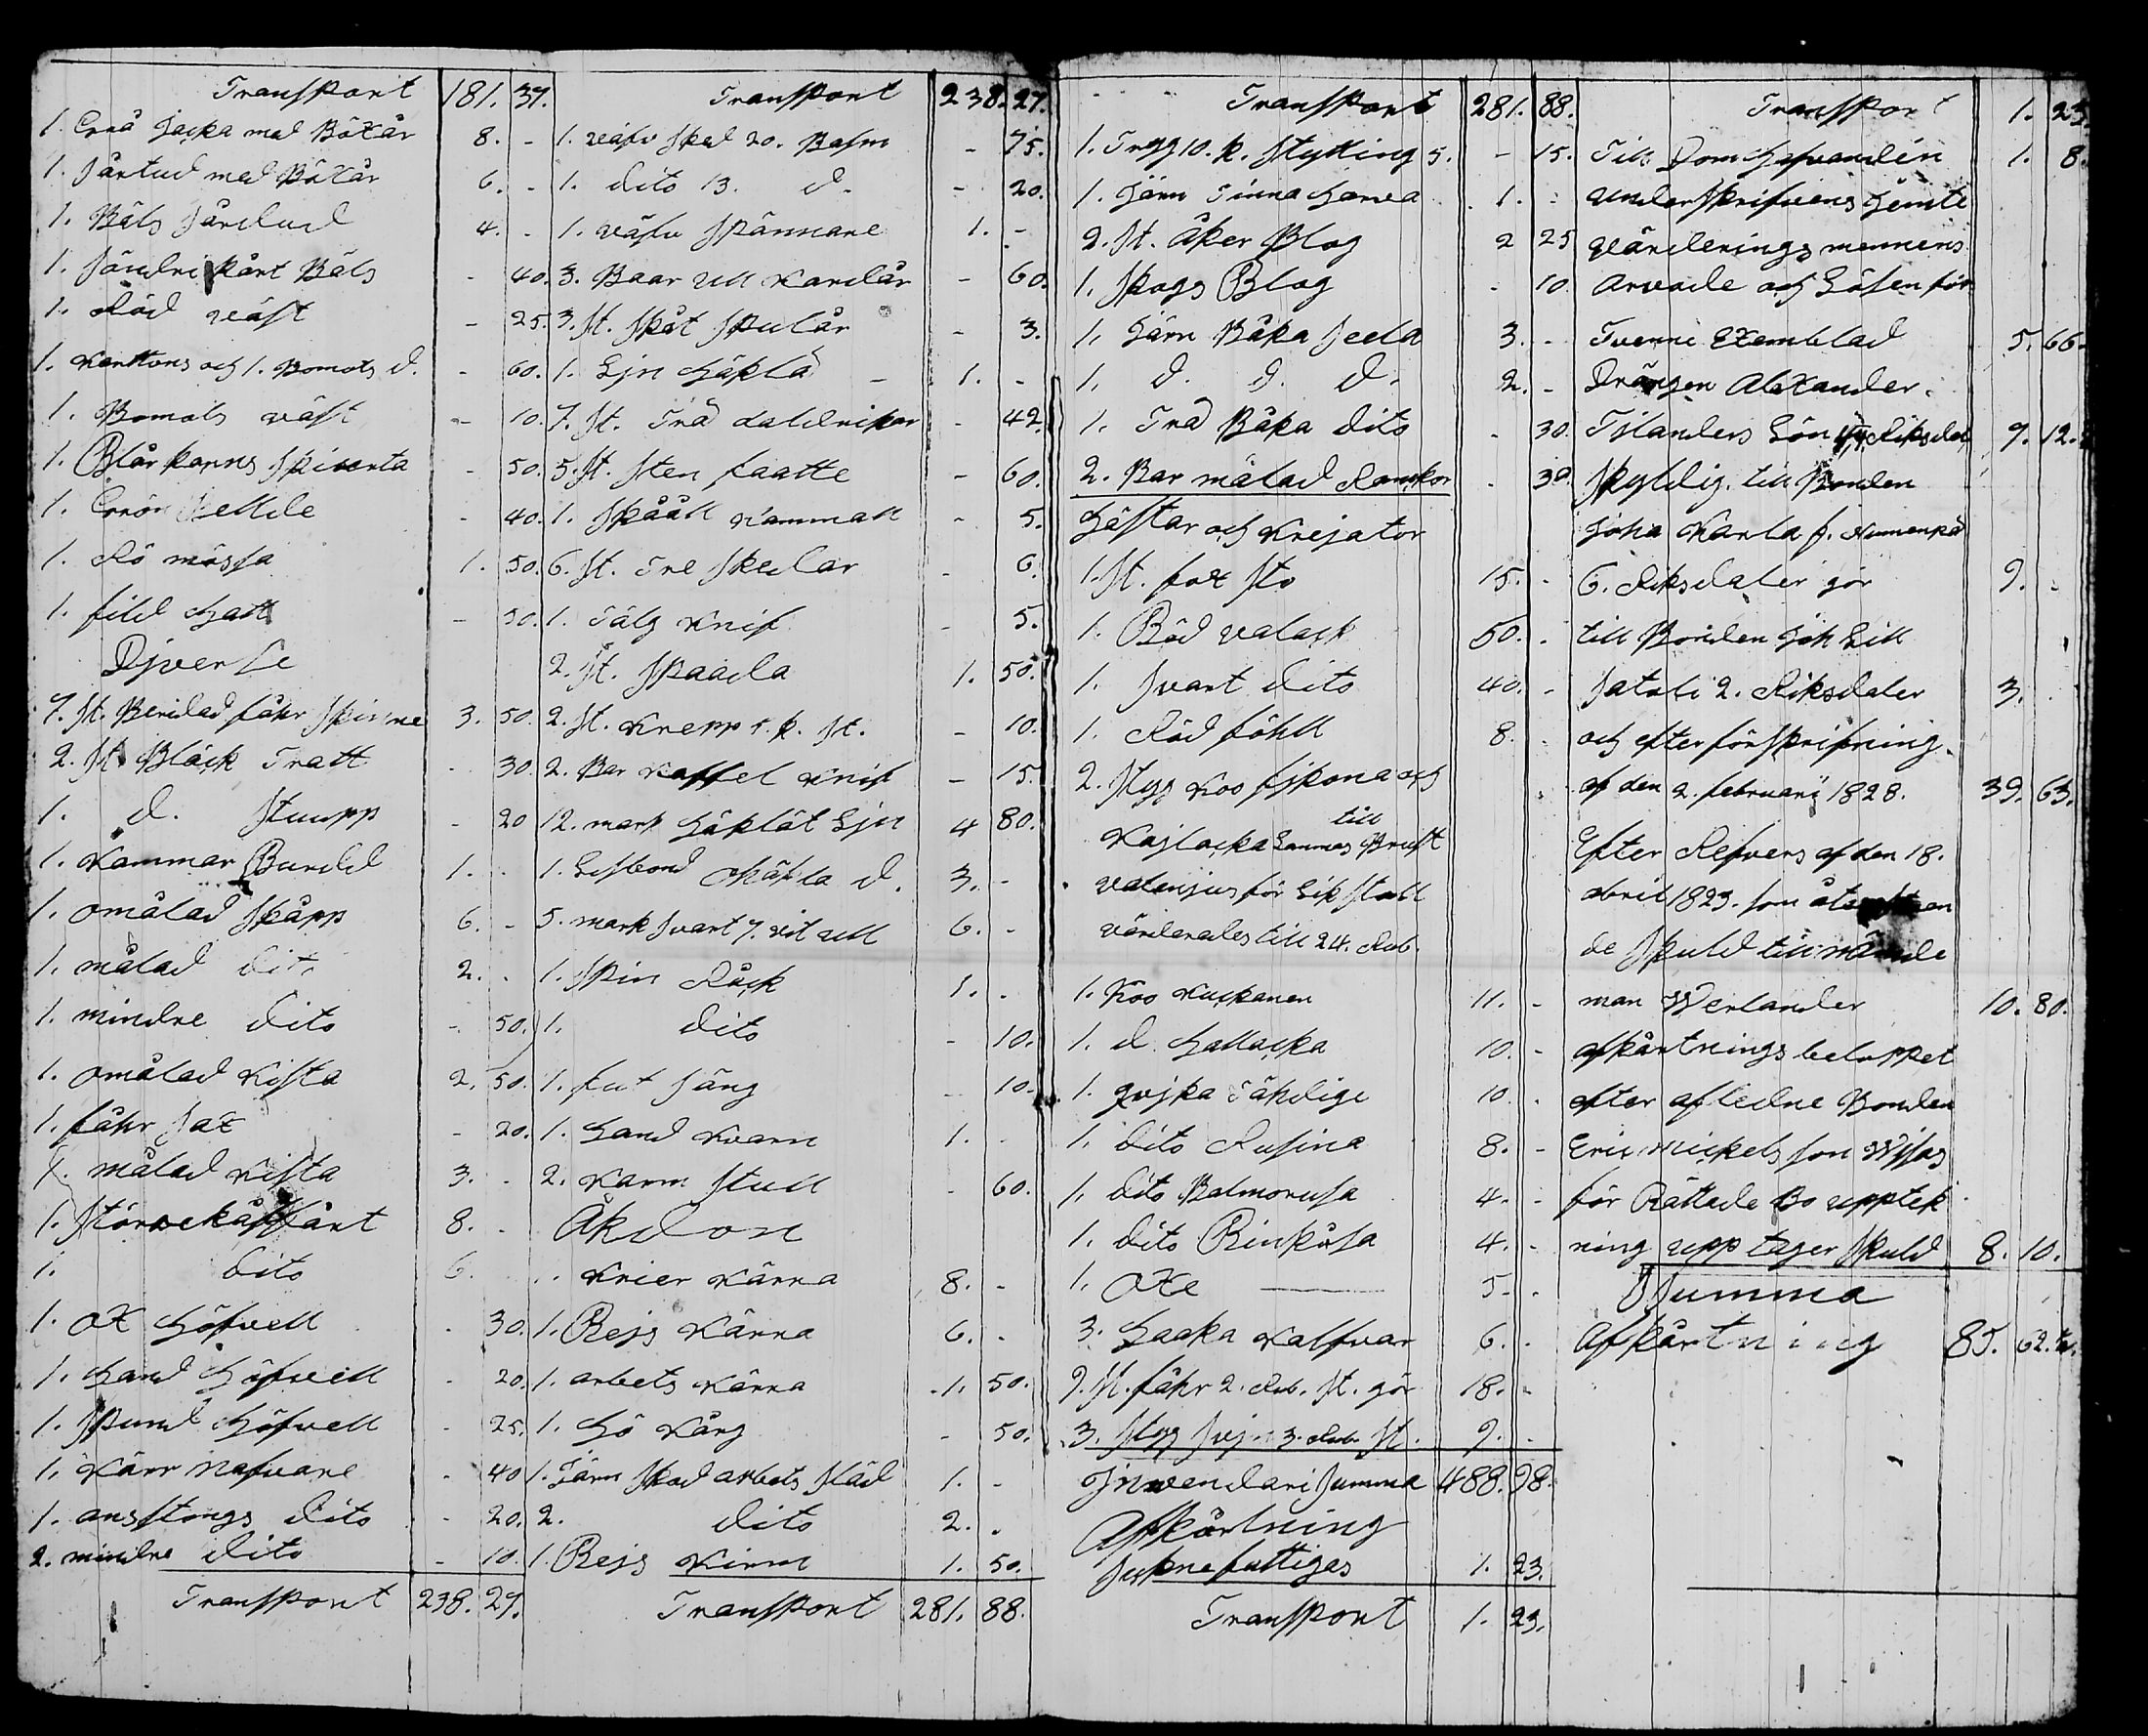 Transport 181. 37.
1. Grå Jacka med Böxår 8. -
1. Sårtud med Böxår 6. -
1. Bäls Sårdud 4. -
1. Söndri kårt Bäls - 40.
1. Röd väst - 25.
1. Kanttons och 1. Bomols d. - 60.
1. Bomols väst - 10.
1. Blår kanns Skiorta - 50.
1. Grön - 40.
1. Rö mössa 1. 50.
1. fild Hatt - 50.
Djverse
7. st. Beridad fåhr Skinne 3. 50.
2. st Bläck Tratt - 30
1. d. Stuupp - 20
1. Kammar Burdd 1. -
1. omålad Skåpp 6. -
1. målad dito 2. -
1. mindre dito - 50.
1. omålad Kista 2. 50.
1. fåhr Sax - 20.
1. målad Kista 3. -
1. Störrekäflårt 8. -
1. dito 6.
1. ox Höfvell - 30.
1. Hand Höfvell - 20.
1. Spund Höfvell - 25.
1. Kärr Nafvare - 40
1. ansstongs dito - 20.
2. mindre dito - 10.
Transport 238. 27.
Transport 238. 27.
1. väfv Sked 20. Basm - 75.
1. dito 13. d. - 20.
1. väfv Spännare 1. -
3. Baar ull Kardår - 60.
3. st. Skåt Spulår - 3.
1. Ljn Häklå 1. -
7. st. Trä daldrikar - 42.
5. st. Sten faatte - 60.
1. Skååll Kammall - 5.
6. st. Tre Skedar - 6.
1. Tälg Knif - 5.
2. st. Spaada 1. 50.
2. st. Knepp 5. k. st. - 10.
2. Bar Kaffel Knif - 15.
12. mark Häklåt Ljn 4 80.
1. Lisbond ohäkla d. 3. -
5. mark Svart 7. vit ull 6. -
1. Spin Råck 1. -
1. dito - 10.
1. fut Säng - 10.
1. Hand Kvarn 1. -
2. Karm Stull - 60.
Åkdon
1. Krier Kärra 8. -
1. Rejs Kärra 6. -
1. arbets Kärra 1. 50.
1. Hö Kärg - 50.
1. Järn Skod arbets Släd 1. -
2. dito 2. .
1. Rejs Kirra 1. 50.
Transport 281. 88.
Transport 281. 88.
1. Trygg 10. k. Stytting 5. - 15.
1. Järn Tinna Harva 1. -
2. st. Åker Blog 2 25
1. Skogs Blog - 10
1. Järn Båka Seela 3. -
1. d. d. d. 2. -
1. Trä Båka dito - 30.
2. Bar målad Ranckor - 30
Hästar och Krejator
1. st. fox Sto 15. -
1. Röd valack 50. -
1. Svart dito 40. -
1. Röd föhll 8. -
2. Stygg Koo fjkona och
Kajlacka Lannas till Brust
valinjus för Likstoll
värderades till 24. Rub.
1. Koo Kuckanen 11. -
1. d. Hallacka 10. -
1. qvjka Tähdige 10 -
1. dito Rusina 8. -
1. dito Balmorusa 4. -
1. dito Rinkusa 4. -
1. oxe 5. -
3. Haaka Kalfvar 6. -
9. st. fåhr 2. Rub. st. gör 18. -
3. Stygg Svjn 3. Rub. st. 9. -
Jnvendari Summa 488. 98.
Afkårtning
Sokne fattigas 1. 23.
Transport 1. 23.
Transport 1. 23.
Till Dom Hafvandén 1. 8.
underskrifvens Hemte
värderings mennens
arvode och Lösen för
Tvenne Exemblad 5. 66.
Drängen Alexander.
Tilanders Lön Riksdal. 9. 12.
Skyldig. till Bonden
Joha Karla f.
6. Riksdaler gör 9. -
till Bonden Joh Lill
Satoli 2. Riksdaler 3. .
och efter förskrifning.
af den 2. februari 1828. 39. 63.
Efter Refvers af den 18.
abril 1823. som
de Skuld till
man Werlander 10. 80.
afkårtnings beloppet
efter afledne Bonden
Eric Mickels son Wjsas
för Rättade Bo upptek
ning upp tager Skuld 8. 10.
Summa
Afkårtning 85. 62.